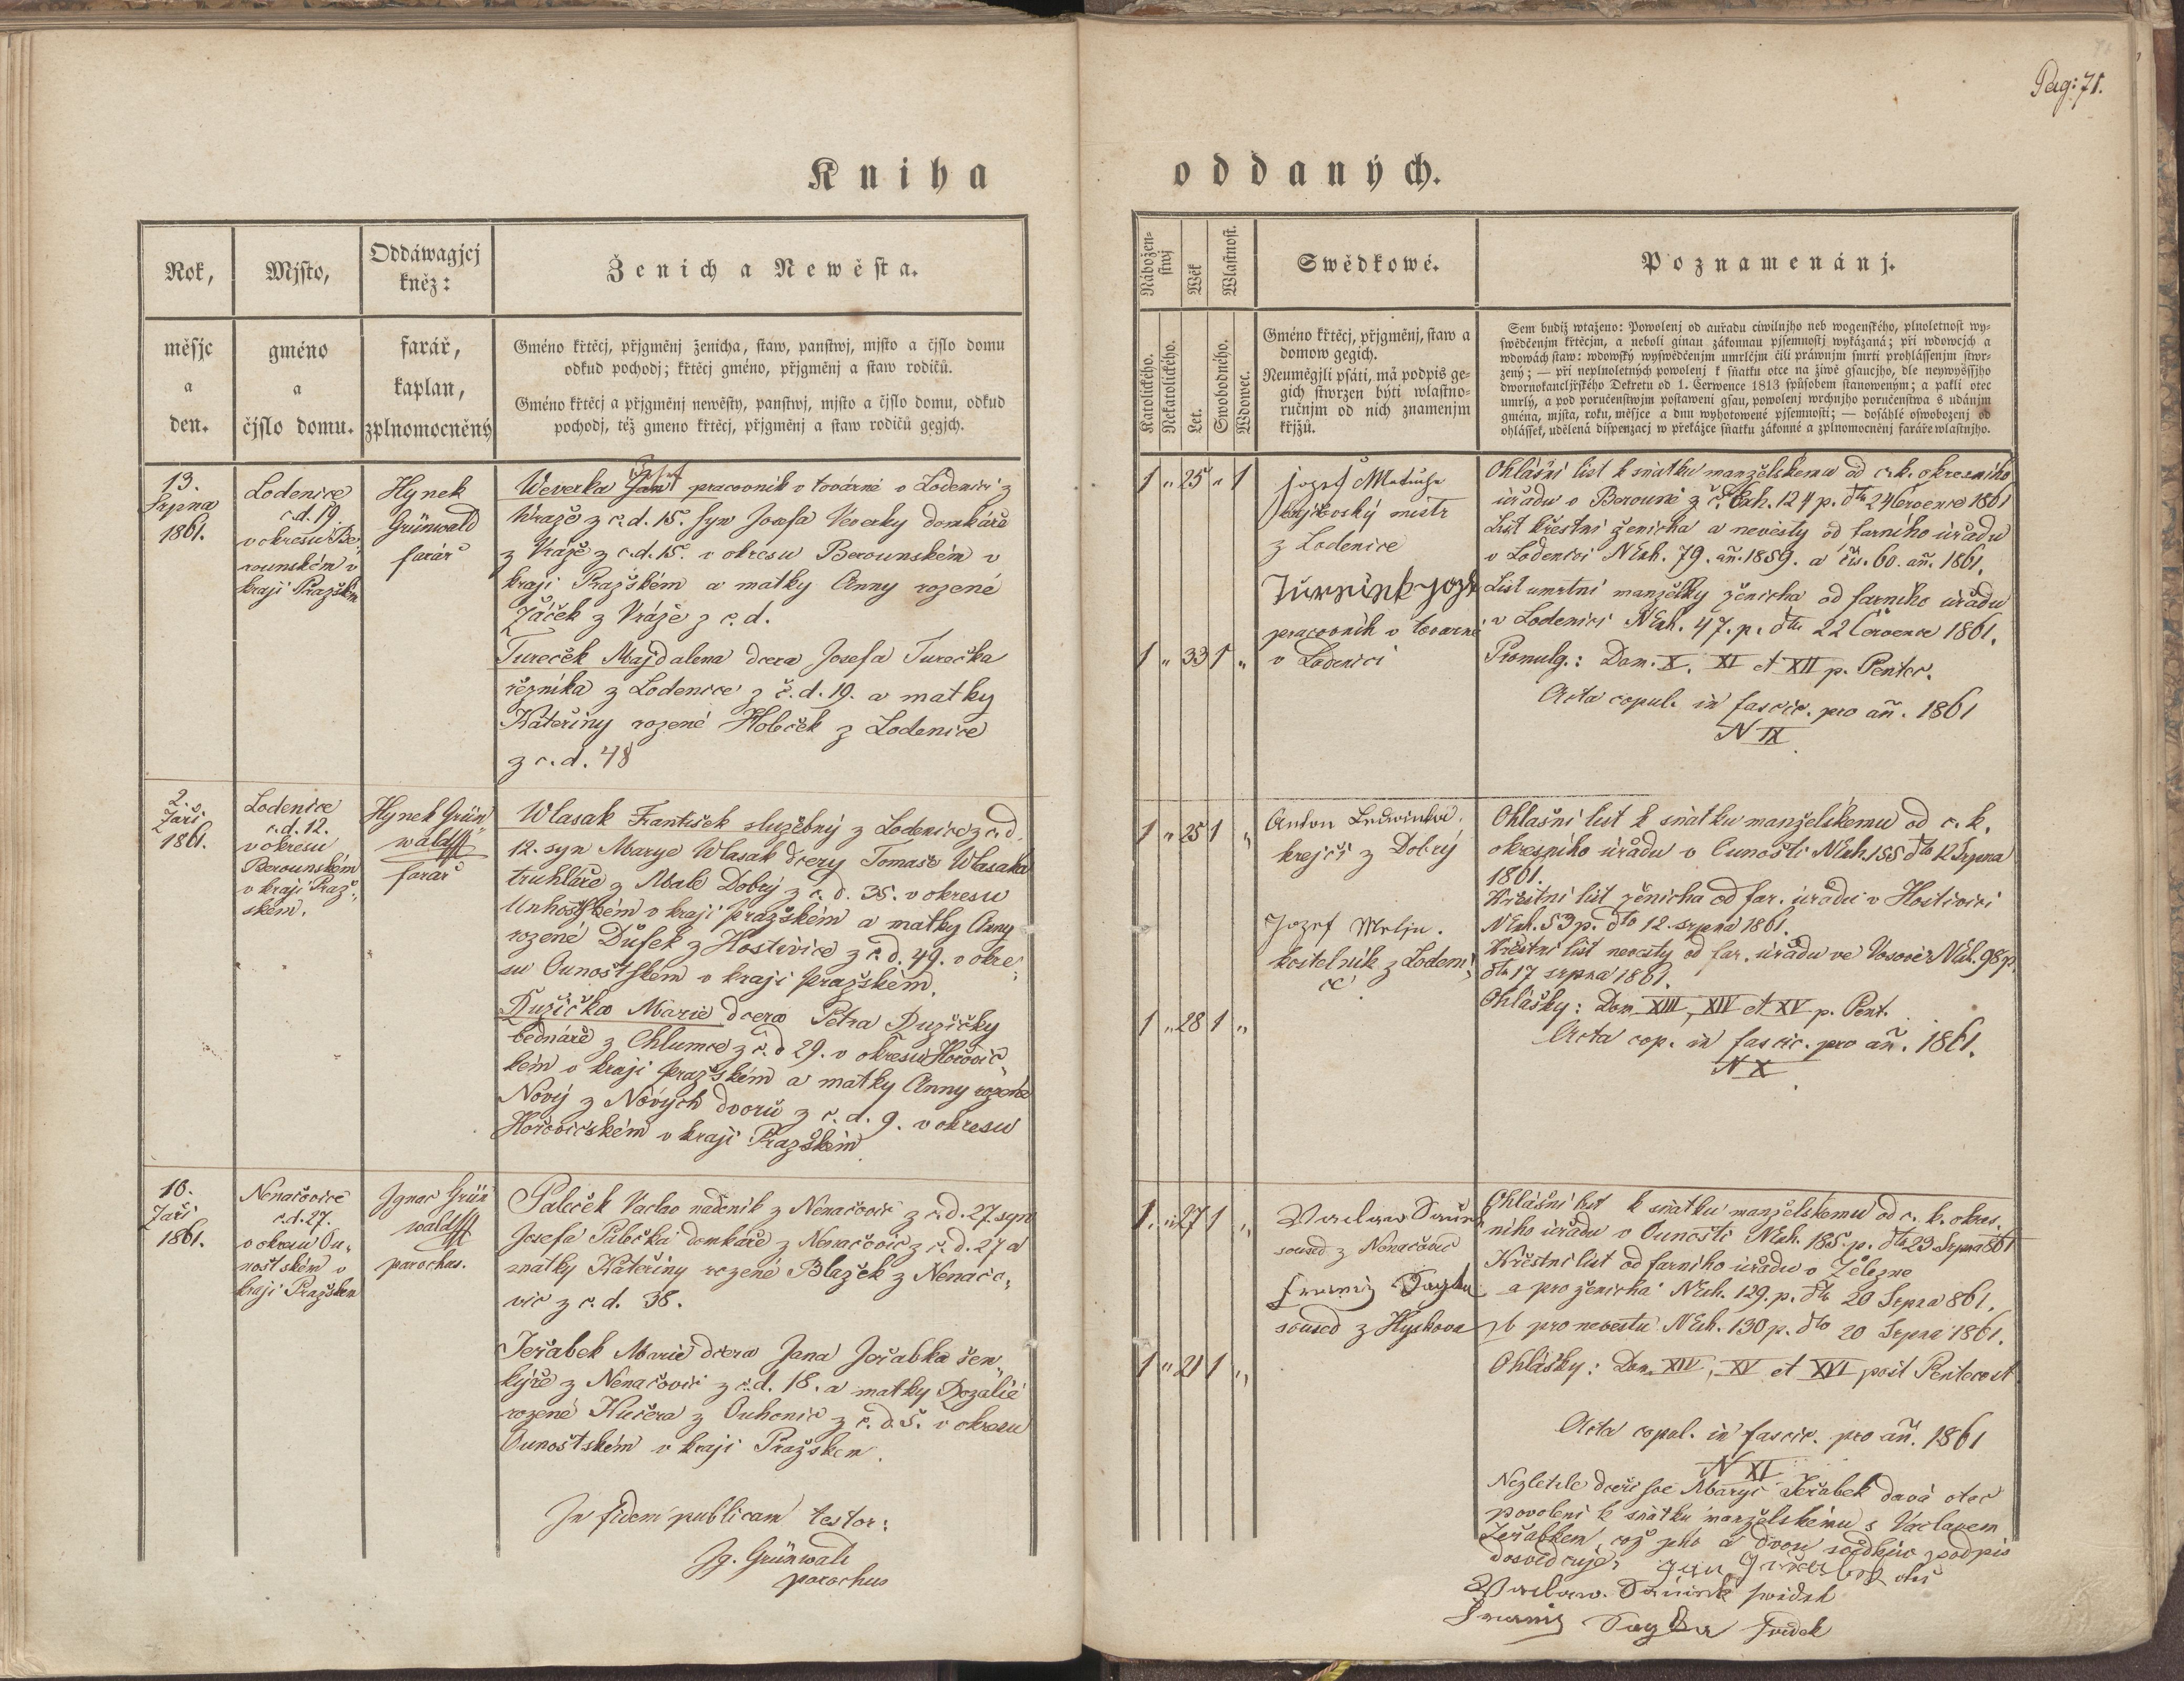 Pag: 71.
Kniha oddaných.
Rok,
měsjc
a
den.
Mjsto,
gméno
a
čjslo domu.
Oddáwagjcj
kněz:
farář,
kaplan,
zplnomocněný
Ženich a Newěsta.
Gméno křtěcj, přjgměnj ženicha, staw, panstwj, mjsto a čjslo domu
odkud pochodj; křtěcj gméno, přjgměnj a staw rodičů.
Gméno křtěcj a přjgměnj newěsty, panstwj, mjsto a čjslo domu, odkud
pochodj, též gmeno křtěcj, přjgměnj a staw rodičů gegjch.
Nábožen-
stwj
Katolického.
Nekatolického.
Wěk
Let.
Wlastnost.
Swobodného.
Wdowec.
Swědkowé.
Gméno křtěcj, přjgměnj, staw a
domow gegich.
Neuměgjli psáti, má podpis ge-
gich stwrzen býti wlastno-
ručnjm od nich znamenjm
křjžů.
Poznamenánj.
Sem budiž wtaženo: Powolenj od auřadu ciwilnjho neb wogenského, plnoletnost wy-
swědčenjm křtěcjm, a neboli ginau zákonnau pjsemnostj wykázaná; při wdowcjch a
wdowách staw: wdowský wyswědčenjm umrlčjm čili práwnjm smrti prohlássenjm stwr-
zený; — při neplnoletných powolenj k sňatku otce na žiwě gsaucjho, dle neywyššjho
dwornokancljřského Dekretu od 1. Čerwence 1813 spůsobem stanoweným; a pakli otec
umrlý, a pod poručenstwjm postaweni gsau, powolenj wrchnjho poručenstwa s udánjm
gména, mjsta, roku, měsjce a dnu wyhotowené pjsemnosti; — dosáhlé oswobozenj od
ohlássek, udělená dispenzacj w překážce sňatku zákonné a zplnomocněnj faráře wlastnjho.
13.
Srpna
1861.
Lodenice
č.d. 19
v okresu Be-
rounském v
kraji Pražském
Hynek
Grünwald
farář
Weverka Josef pracovník v továrně v Lodenici z
Wraže z č.d. 15. syn Josefa Veverky domkáře
z Vráže z č.d. 15. v okresu Berounském v
kraji Pražském a matky Anny rozené
Žáček z Vráže z č.d.
Tureček Majdalena dcera Josefa Turečka
řezníka z Lodenice z č.d. 19. a matky
Kateřiny rozené Holeček z Lodenice
z č.d. 48
1 " 25 " 1
1 " 33 1 "
jozef Matucha
mistr
z Lodenice
pracovník v továrně
v Lodenici
Ohlášní list k sňatku manželskému od c.k. okresního
úřadu v Berouně z č. Exh. 124 p. dto 24 Července 1861
List křestní ženicha a nevěsty od farního úřadu
v Lodenici N Exh. 79. añ. 1859. a čis. 60. añ. 1861.
List umrtní manželky ženicha od farního úřadu
v Lodenici N Exh. 47. p. dto 22 Července 1861.
Promulg.: Dom. X. XI et XII p. Pentec.
Acta copul. in fascic. pro añ. 1861
N IX
2.
Září
1861.
Lodenice
č.d. 12.
v okresu
Berounském
v kraji Praž-
ském.
Hynek Grün-
wald
farář
Wlasak František služebný z Lodenice z č.d.
12. syn Marye Wlasak dcery Tomaše Wlasaka
truhláře z Malé Dobrý z č.d. 35. v okresu
Unhošťském v kraji pražském a matky Anny
rozené Dušek z Hostivice z č.d. 49. v okre-
su Ounošťském v kraji pražském.
Růžička Marie dcera Petra Růžičky
bednáře z Chlumce z č.d. 29. v okresu Hořovic-
kém v kraji pražském a matky Anny rozené
Nový z Nových dvorů z č.d. 9. v okresu
Hořovickém v kraji Pražském
1 " 25 1 "
1 " 28 1 "
Anton Ledwinka.
krejčí z Dobrý
Jozef Melju.
kostelník z Lodeni-
ce
Ohlašní list k sňatku manželskému od c. k.
okresního úřadu v Ounošti N Exh. 155 dto 12 Srpna
1861.
Křestní list ženicha od far. úřadu v Hostivici
N Exh. 53 p. dto 12. srpna 1861.
Křestní list nevěsty od far. úřadu ve N Exh. 98 p.
dto 17 srpna 1861.
Ohlášky: Dom. XIII, XIV et XV p. Pent.
Acta cop. in fascic. pro añ. 1861.
N X
16.
Září
1861.
Nenačovice
č.d. 27.
v okresu Ou-
nošťském v
kraji Pražském
Ignac Grün-
wald
parochus.
Paleček Václav nádeník z Nenačovic z č.d. 27. syn
Josefa Palečka domkáře z Nenačovic z č.d. 27 a
matky Kateřiny rozené Blažek z Nenačo-
vic z č.d. 38.
Jeřabek Marie dcera Jana Jeřabka šen-
kýře z Nenačovic z č.d. 18. a matky Rozalie
rozené Kučera z Ouhonic z č.d. 5. v okresu
Ounošťském v kraji Pražském.
In fidem publicam testor:
Ig. Grünwald
parochus
1 " 27 1 "
1 " 21 1 "
Waclaw
soused z Nenačovic
soused z Hyskova
Ohlášní list k sňatku manželskému od c. k. okres-
ního úřadu v Ounošti N Exh. 185. p. dto 23 Srpna 861
Křestní list od farního úřadu v Železne
a pro ženicha N Exh. 129. p. dto 20 Srpna 861.
b pro nevěstu N Exh. 130 p. dto 20 Srpna 1861.
Ohlášky: Dom. XIV, XV et XVI post Pentecost.
Acta copul. in fascic. pro añ. 1861
N XI
Nezletilé dceři své Maryi Jeřabek dává otec
povolení k sňatku manželskému s Václavem
Jeřabkem, což jeho a dvou svědkův podpis
dosvědčuje.
otec
Waclaw. swědek
swědek